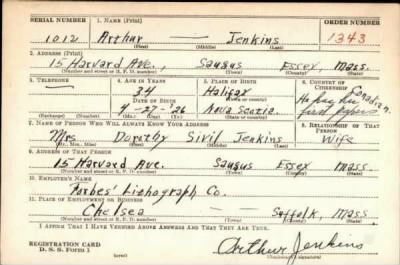 SERIAL NUMBER 1. NAME (Print) ORDER NUMBER
1012 Arthur — Jenkins 1343
(First) (Middle) (Last)
2. ADDRESS (Print)
15 Harvard Ave., Saugus Essex, Mass.
(Number and street or R. F. D. number) (Town) (County) (State)
3. TELEPHONE 4. AGE IN YEARS 5. PLACE OF BIRTH 6. COUNTRY OF CITIZENSHIP
— 34 Halifax Canadian
DATE OF BIRTH (Town or county) He has his
4-27-'06 Nova Scotia. first papers
(Exchange) (Number) (Mo.) (Day) (Yr.) (State or country)
7. NAME OF PERSON WHO WILL ALWAYS KNOW YOUR ADDRESS 8. RELATIONSHIP OF THAT PERSON
Mrs. Dorothy Sivil Jenkins Wife
(Mr., Mrs., Miss) (First) (Middle) (Last)
9. ADDRESS OF THAT PERSON
15 Harvard Ave. Saugus Essex Mass.
(Number and street or R. F. D. number) (Town) (County) (State)
10. EMPLOYER'S NAME
Forbes' Lithograph Co.
11. PLACE OF EMPLOYMENT OR BUSINESS
Chelsea — Suffolk, Mass.
(Number and street or R. F. D. number) (Town) (County) (State)
I AFFIRM THAT I HAVE VERIFIED ABOVE ANSWERS AND THAT THEY ARE TRUE.
REGISTRATION CARD
D. S. S. Form 1 Arthur Jenkins